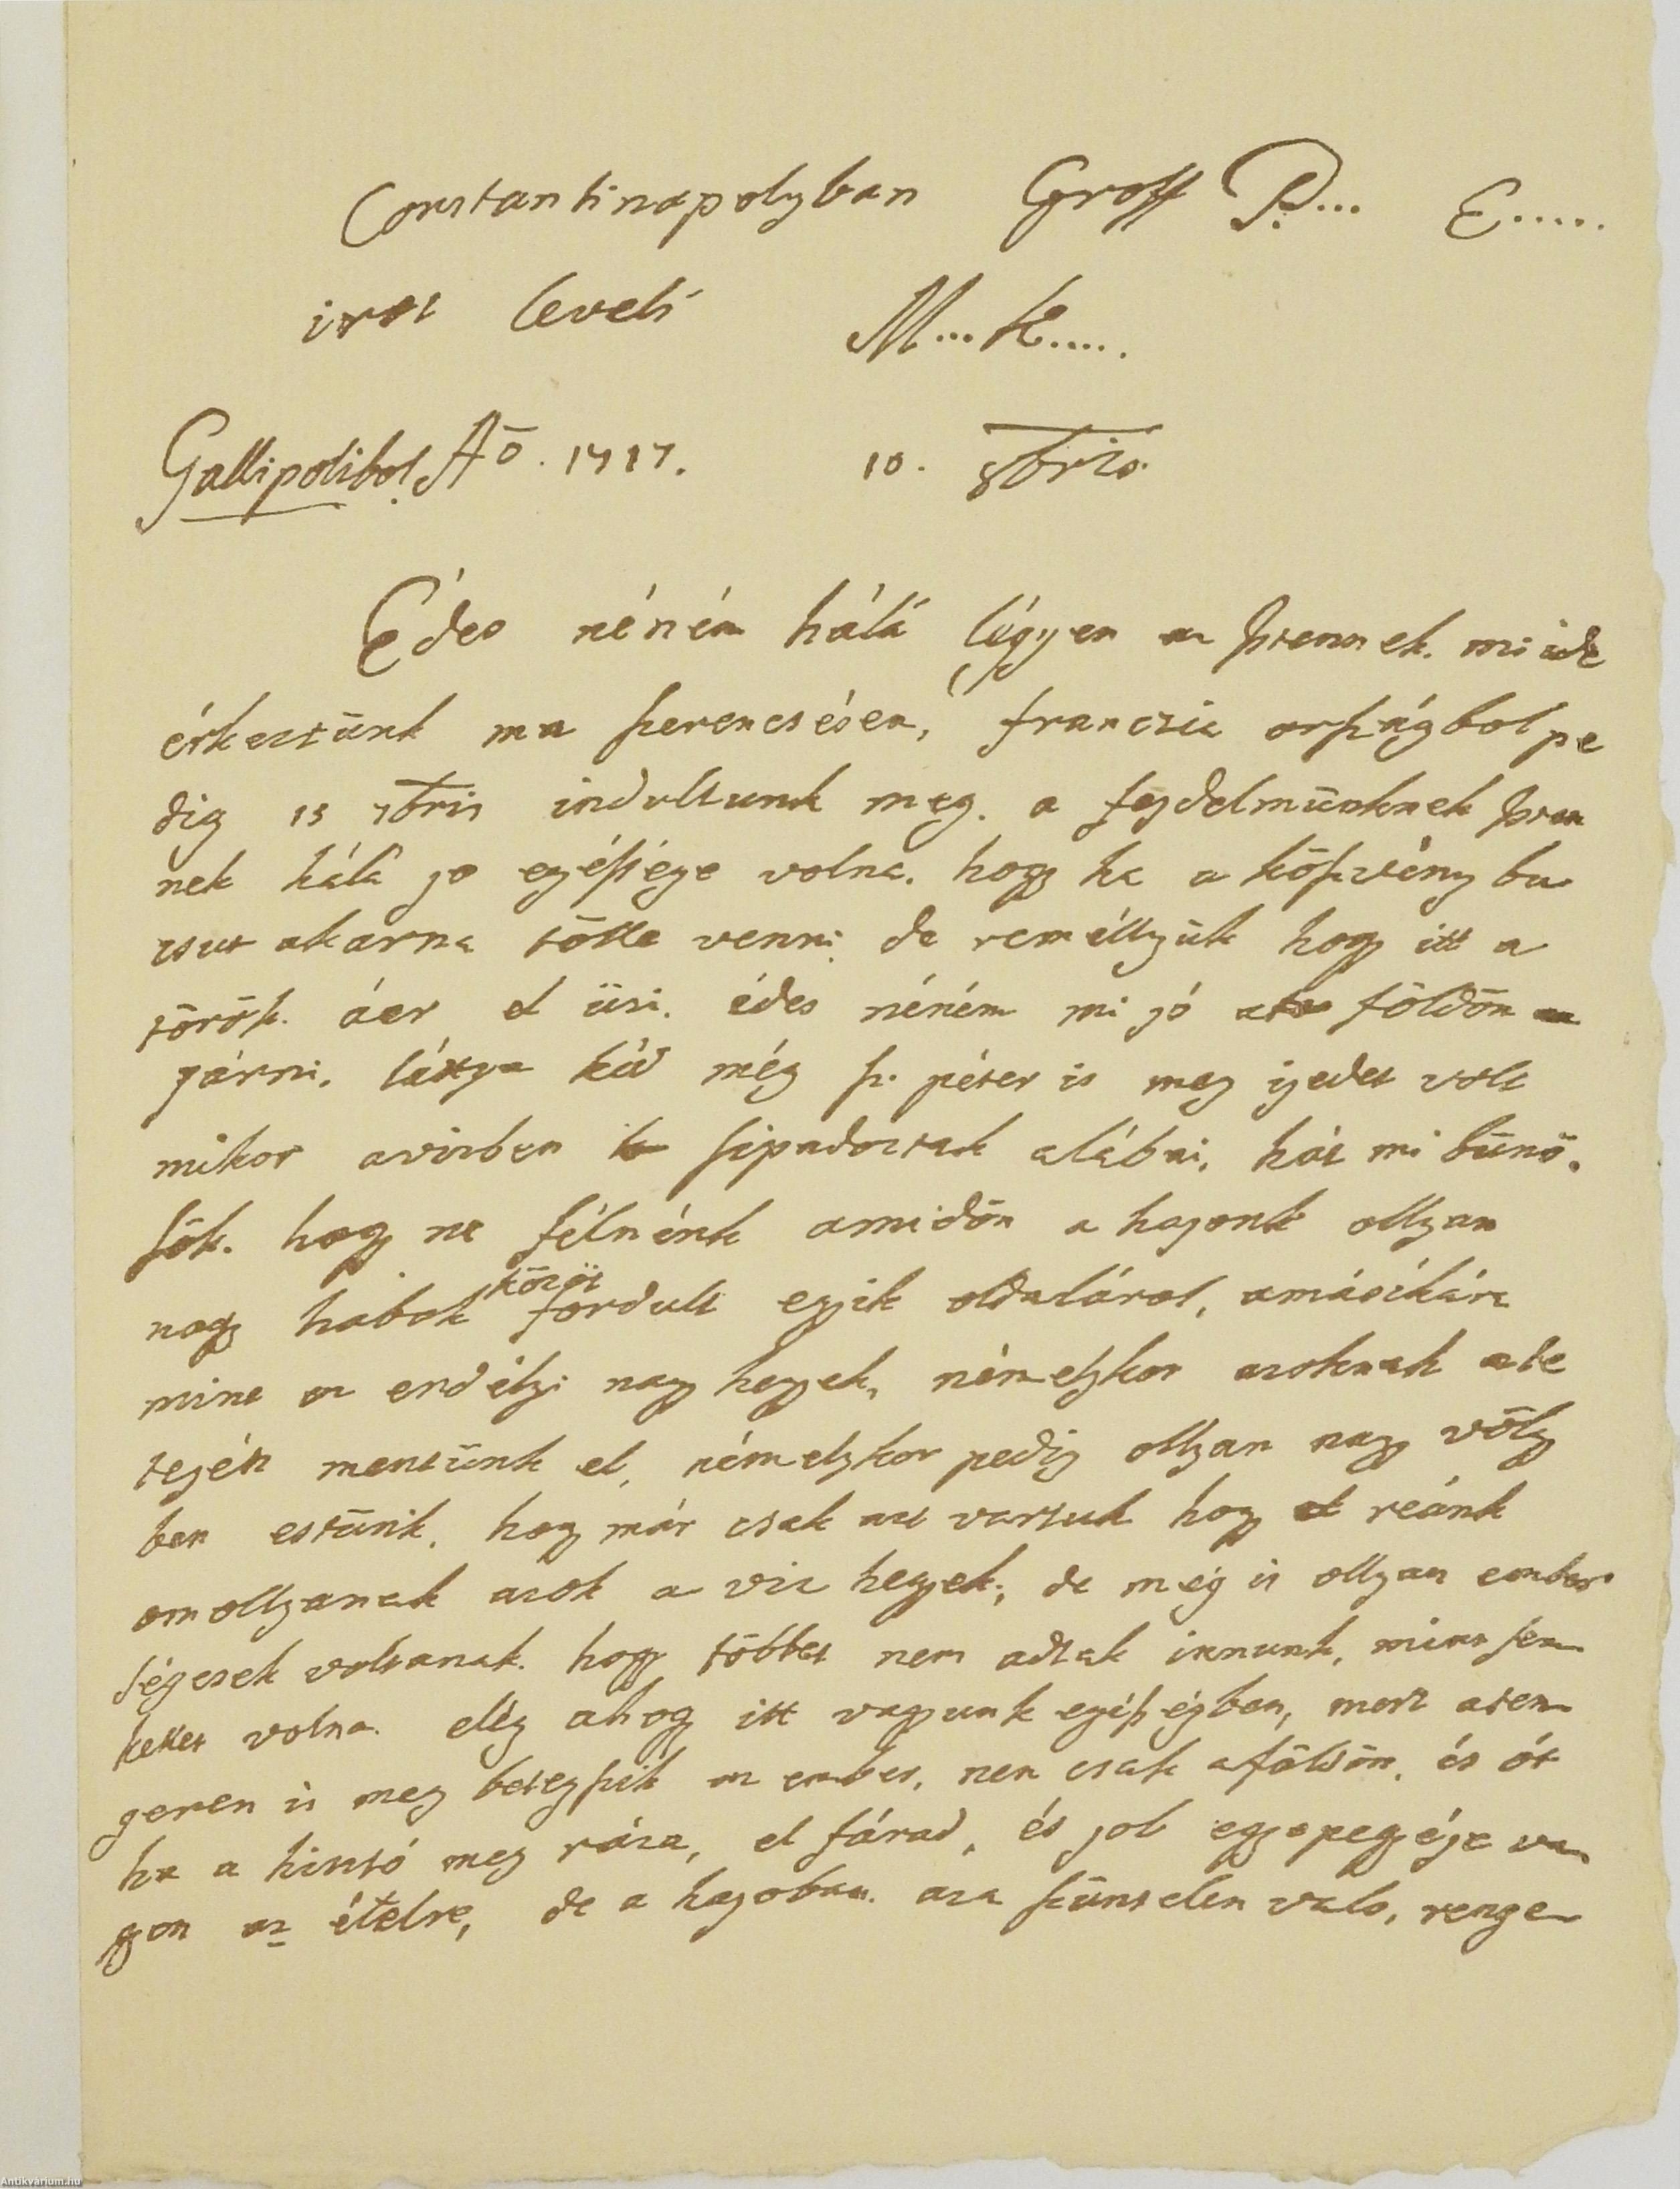 Constantinapolyban Groff P... E.....
irot leveli M... K.....
Gallipolibol Aō. 1717. 10. 8bris.
Édes néném hálá légyen az Istennek. mi ide
érkeztünk ma szerencsésen, francziá országbol pe
dig 15 7bris indultunk meg. a fejdelmünknek Isten
nek hálá jo egésége volna. hogy ha a köszvény bu
csut akarna tölle venni, de reméllyük hogy itt a
török. áer el üzi. édes néném mi jó a földön
járni. láttya kéd még sz. péter is meg ijedet volt
mikor avizben sipadoztak alábai, hát mi bünö.
sök. hogy ne félnénk amidön a hajonk ollyan
nagy habok közöt fordult egyik oldalárol, amásikára
mint az erdélyi nagy hegyek, némelykor azoknak ate
tején mentünk el, némelykor pedig ollyan nagy völgy
ben estünk, hogy már csak azt vartuk hogy reánk
omollyanak azok a viz hegyek, de még is ollyan ember
ségesek voltanak. hogy többet nem adtak innunk, mint sem
kellet volna. elég ahogy itt vagyunk egésségben, mert aten
geren is meg betegszik az ember, nem csak aföldön, és ót
ha a hintó meg rázza, el fárad, és job egyepegyéje va
gyon az ételre, de a hajoban. aza szüntelen valo, renge
Antikvárium.hu